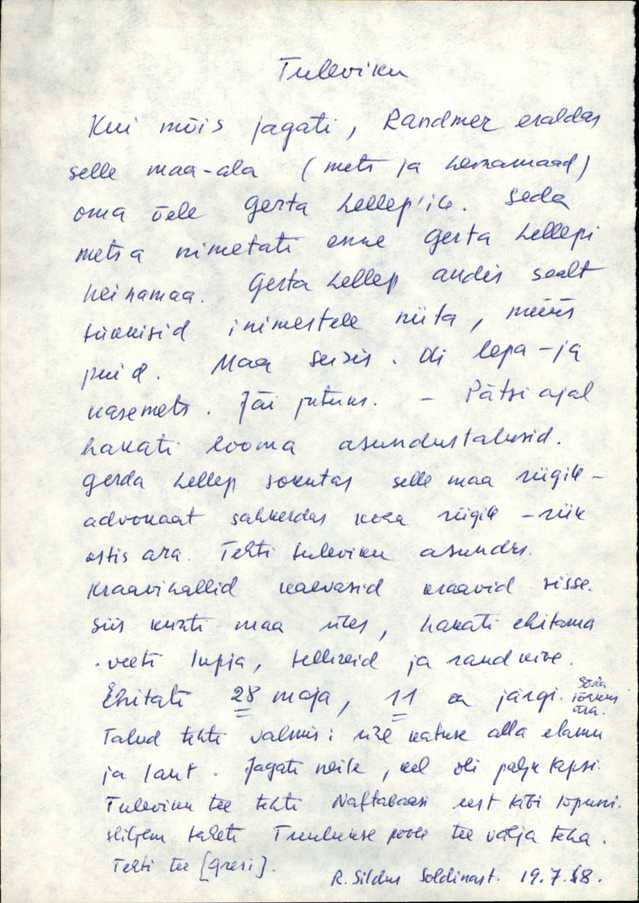 Tuleviku
Kui mõis jagati, Randmer eraldas
selle maa-ala (mets ja heinamaad)
oma õele Gerta Lellep'ile. Seda
metsa nimetati enne Gerta Lellepi
heinamaa. Gerta Lellep andis sealt
tükkisid inimestele niita, müüs
puid. Maa seisis. Oli lepa-ja
kasemets. Jäi jutuks. – Pätsi ajal
hakati looma asundustalusid.
Gerda Lellep sokutas selle maa riigile –
advokaat sahkerdas koha riigile – riik
ostis ära. Tehti Tuleviku asundus.
Kraavihallid kaevasid kraavid sisse.
Siis künti maa üles, hakati ehitama
. veeti lupja, telliseid ja raudkive.
Ehitati 28 maja, 11 on järgi. Sõja
Talud tehti valmis: ühe katuse alla elamu
ja laut. Jagati neile, kel oli palju lapsi.
Tuleviku tee tehti Naftabaasi eest läbi lõpuni.
Hiljem taheti Truuluse poole tee välja teha.
Tehti tee [Gresi].
R. Sildus Soldinast. 19.7.68.